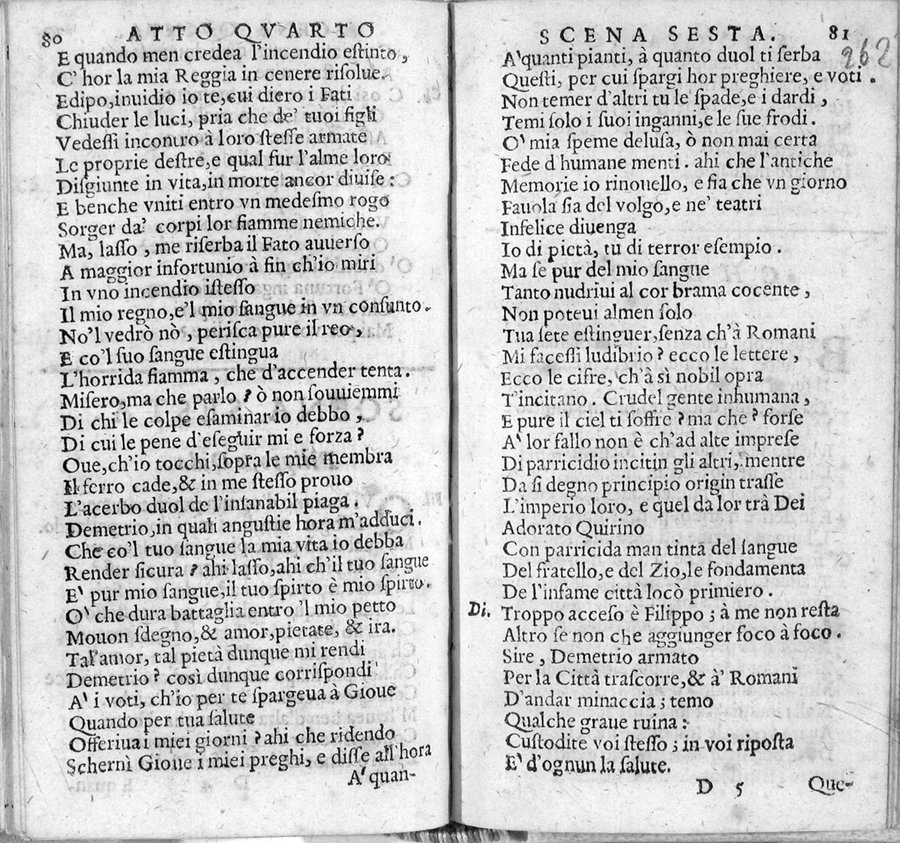 80 ATTO QVARTO
E quando men credea l'incendio estinto,
C'hor la mia Reggia in cenere risolue.
Edipo,inuidio io te,cui diero i Fati
Chiuder le luci, pria che de' tuoi figli
Vedessi incontro à loro stesse armate
Le proprie destre,e qual fur l'alme loro
Disgiunte in vita,in morte ancor diuise:
E benche vniti entro vn medesmo rogo
Sorger da' corpi lor fiamme nemiche.
Ma, lasso, me riserba il Fato auuerso
A maggior infortunio à fin ch'io miri
In vno incendio istesso
Il mio regno,e'l mio sangue in vn consunto.
No'l vedrò nò, perisca pure il reo,
E co'l suo sangue estingua
L'horrida fiamma, che d'accender tenta.
Misero,ma che parlo? ò non souuiemmi
Di chi le colpe esaminar io debbo,
Di cui le pene d'eseguir mi e forza?
Oue,ch'io tocchi,sopra le mie membra
Il ferro cade,& in me stesso prouo
L'acerbo duol de l'insanabil piaga.
Demetrio,in quali angustie hora m'adduci.
Che co'l tuo sangue la mia vita io debba
Render sicura? ahi lasso,ahi ch'il tuo sangue
E' pur mio sangue,il tuo spirto è mio spirto.
O' che dura battaglia entro 'l mio petto
Mouon sdegno,& amor,pietate, & ira.
Tal'amor, tal pietà dunque mi rendi
Demetrio? così dunque corrispondi
A' i voti, ch'io per te spargeua à Gioue
Quando per tua salute
Offeriua i miei giorni? ahi che ridendo
Schernì Gioue i miei preghi, e disse all'hora
A' quan-
SCENA SESTA. 81
262
A' quanti pianti, à quanto duol ti serba
Questi, per cui spargi hor preghiere, e voti.
Non temer d'altri tu le spade,e i dardi,
Temi solo i suoi inganni,e le sue frodi.
O' mia speme delusa, ò non mai certa
Fede d'humane menti. ahi che l'antiche
Memorie io rinouello, e fia che vn giorno
Fauola sia del volgo,e ne' teatri
Infelice diuenga
Io di pietà, tu di terror esempio.
Ma se pur del mio sangue
Tanto nudriui al cor brama cocente,
Non poteui almen solo
Tua sete estinguer,senza ch'à Romani
Mi facessi ludibrio? ecco le lettere,
Ecco le cifre, ch'à sì nobil opra
T'incitano. Crudel gente inhumana,
E pure il ciel ti soffre? ma che? forse
A' lor fallo non è ch'ad alte imprese
Di parricidio incitin gli altri, mentre
Da sì degno principio origin trasse
L'imperio loro, e quel da lor trà Dei
Adorato Quirino
Con parricida man tinta del sangue
Del fratello,e del Zio,le fondamenta
De l'infame città locò primiero.
Di. Troppo acceso è Filippo; à me non resta
Altro se non che aggiunger foco à foco.
Sire, Demetrio armato
Per la Città trascorre,& à' Romani
D'andar minaccia; temo
Qualche graue ruina:
Custodite voi stesso; in voi riposta
E' d'ognun la salute.
D 5 Que-